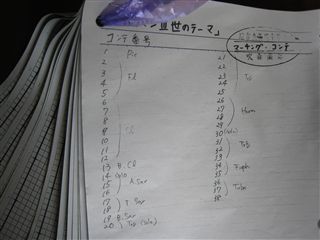 のテーマ」
コンテ番号
マーキング・コンテ
1 Picc
2
3 Fl
4
5
6
7
8
9 Cl
10
11
12
13 B.Cl
14
15 A.Sax
16
17 T.Sax
18
19 B.Sax
20 Trp (solo)
21
22
23 Tp
24
25
26
27 Horn
28
29
30 (solo)
31
32 T.B
33
34 Euph
35
36
37 Tuba
38